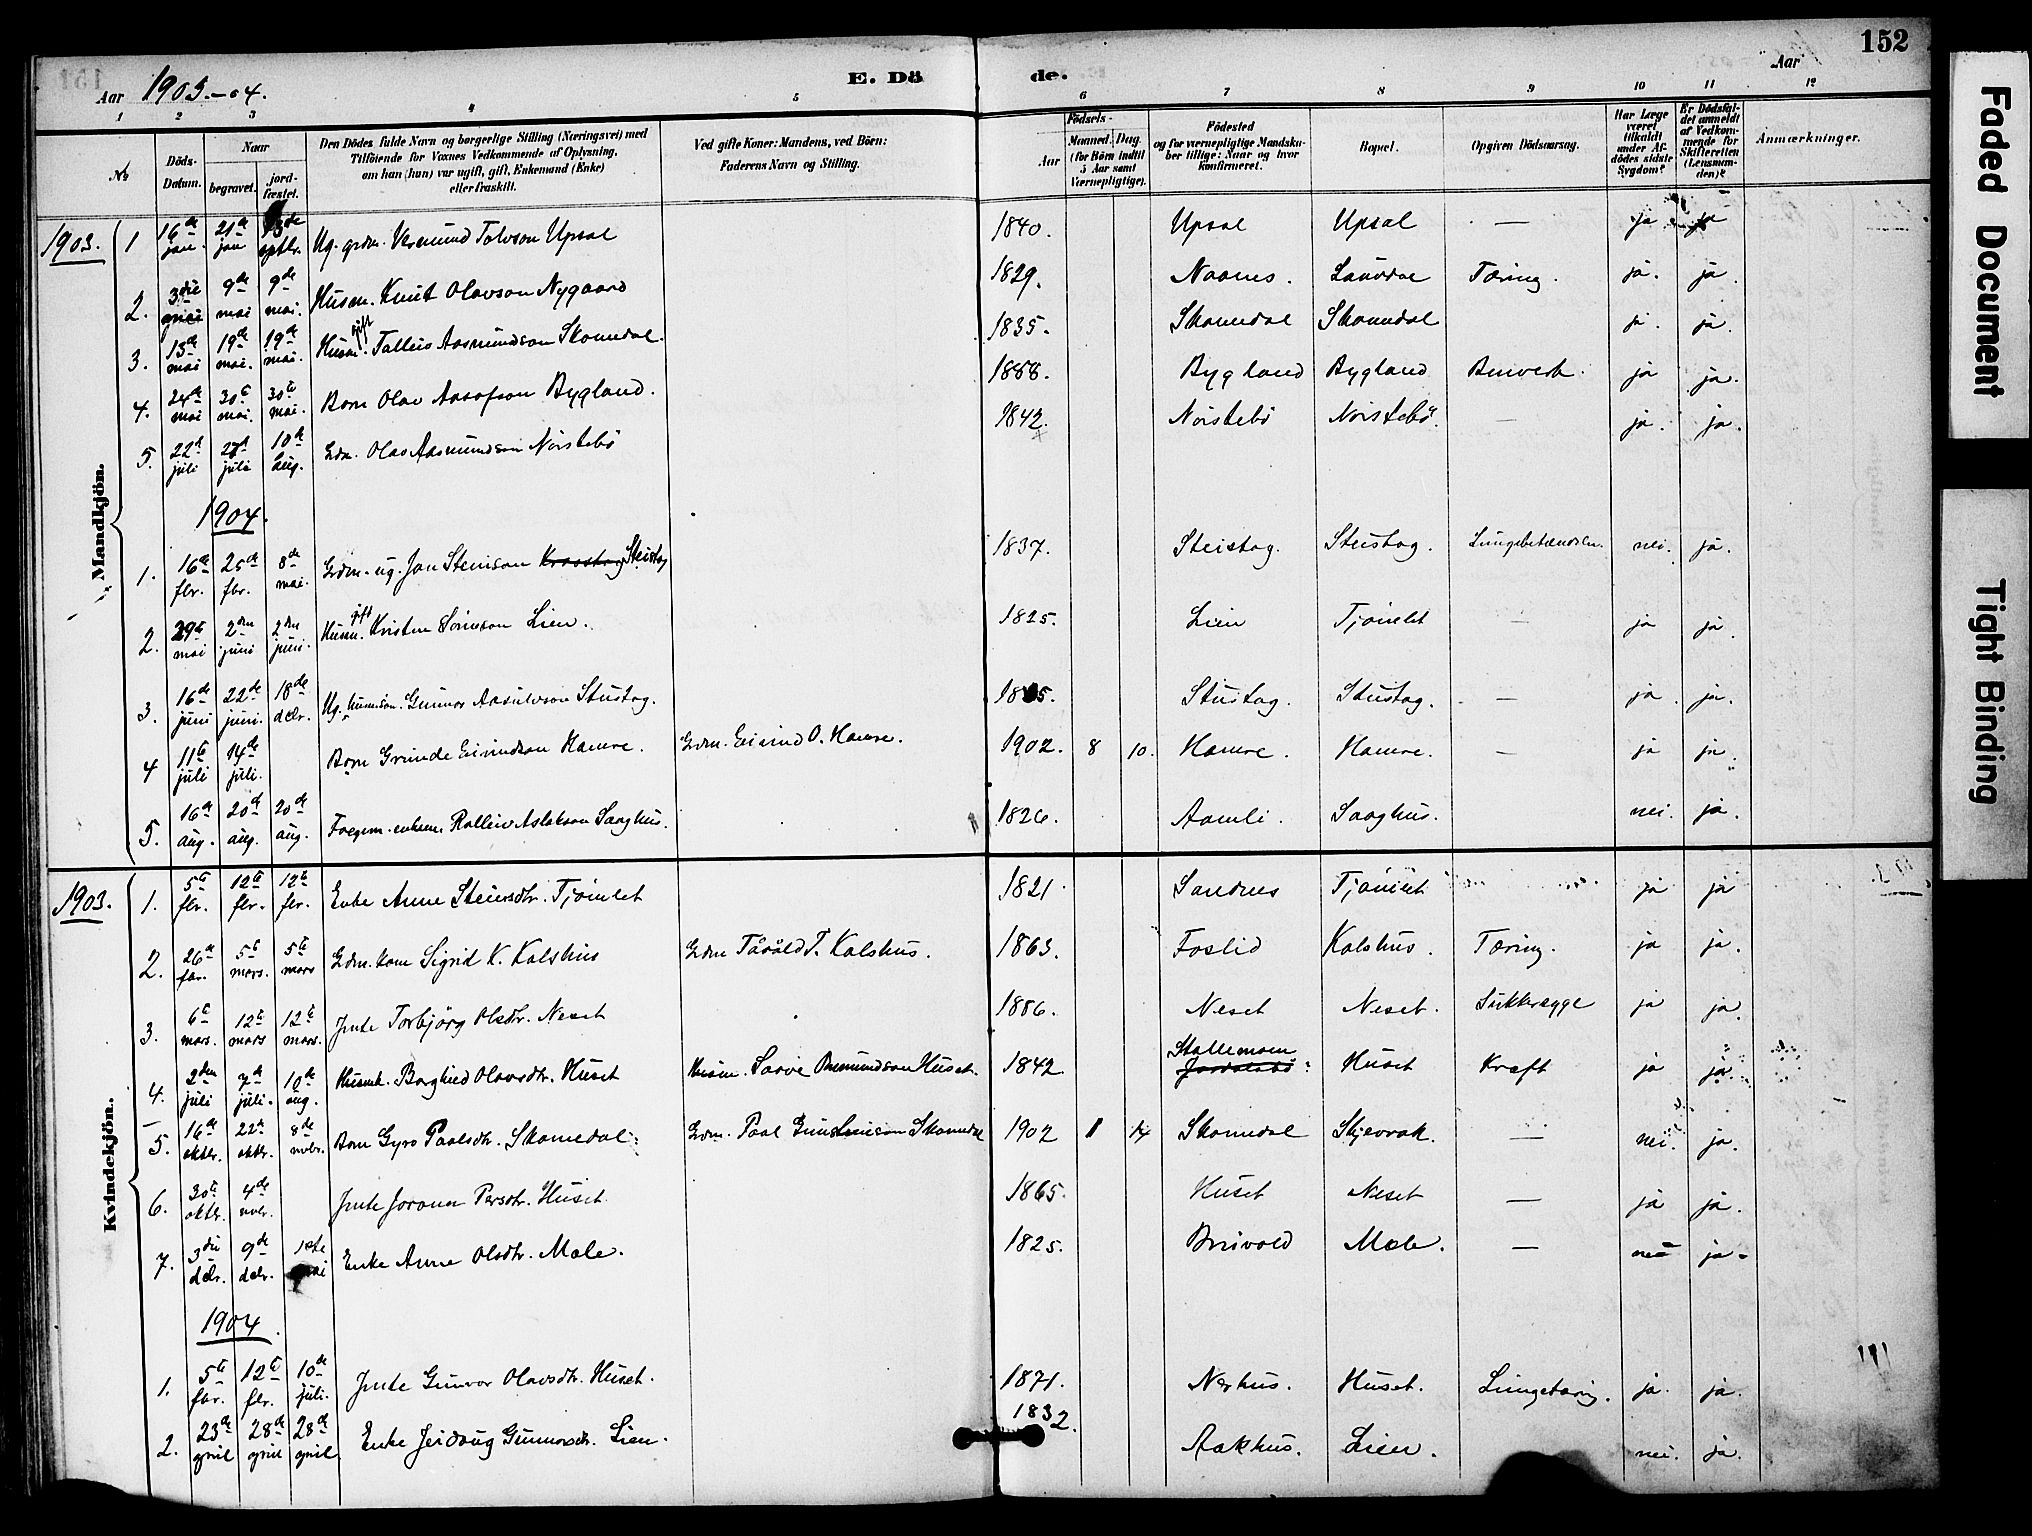 152
Aar 1903.-04.
E. Döde.
Aar
1 2 3 4 5 6 7 8 9 10 11 12
№
Döds-Datum.
Naar
begravet.
jord-fæstet.
Den Dödes fulde Navn og borgerlige Stilling (Næringsvei) med Tilföiende for Voxnes Vedkommende af Oplysning, om han (hun) var ugift, gift, Enkemand (Enke) eller fraskilt.
Ved gifte Koner: Mandens, ved Börn: Faderens Navn og Stilling.
Födsels-
Aar
Maaned. Dag. (for Börn indtil 5 Aar samt Værnepligtige).
Födested og for værnepligtige Mandskaber tillige: Naar og hvor konfirmeret.
Bopæl.
Opgiven Dödsaarsag.
Har Læge været tilkaldt under Afdödes sidste Sygdom?
Er Dödsfaldet anmeldt af Vedkommende for Skifteretten (Lensmanden)?
Anmærkninger.
Mandkjön.
1903. 1 16de jan. 21de jan 13de sptbr. Ug. grdm. Vermund Tolvson Upsal 1840. Upsal Upsal — ja ja
2. 3die mai 9de mai 9de mai. Husm. Knut Olavson Nygaard 1829. Naanes. Lauvdal Tæring. ja. ja.
3. 13de mai 19de mai. 19de mai. Husm. gift Talleiv Aasmundson Skomedal. 1835. Skomedal Skomedal ja. ja.
4. 24de mai 30te mai. 30te mai. Barn Olav Aasofson Bygland. 1888. Bygland Bygland Benverk. ja ja.
5. 22de juli 27de juli 10de aug. Gdm. Olav Aasmundson Nörstebö 1842. Nörstebö Nörstebö. — ja. ja.
1904.
1. 16de fbr. 25de fbr. 8de mai. Grdm. ug. Jon Steinson Steistog 1837. Steistog. Steistog. Lungebetændelse. nei. ja.
2. 29te mai 2den juni 2den juni. Husm. gift Kristen Sörenson Lien. 1825. Lien Tjömlet — ja ja.
3. 16de juni 22de juni. 18de debr. Ug. husmson. Gunnar Aasulvson Stustog. Stustog. Stustog. — ja. ja.
4 11te juli 14de juli. Barn Grunde Eivindson Hamre. Grdm. Eivind O. Hamre. 1902. 8 10. Hamre. Hamre. — ja ja.
5. 16de aug. 20de aug. 20de aug. Foegem. enkem. Rolleiv Aslakson Saaghus. 1826. Aamli. Saaghus. nei. ja.
Kvindekjön.
1903. 1. 5te fbr. 12te fbr. 12te fbr. Enke Anne Steinsdtr. Tjömlet 1821 Sandnes Tjömlet ja ja
2. 26de fbr. 5te mars. 5te mars Gdm. kone Sigrid K. Kalshus Gdm Tåråld T. Kalshus. 1863. Foslid Kalshus. Tæring. ja ja.
3. 6te mars. 12te mars 12te mars. Jente Torbjörg Olsdtr. Neset 1886. Neset Neset. Sukkersyge ja ja.
4. 2den juli 7de juli. 10de aug. Husmk. Borghild Olavsdtr. Huset Husm. Huset. 1842 Stallemoen Huset Kræft ja ja.
5. 16de oktbr. 22de oktbr. 8de novbr. Barn Gyro Paalsdtr. Skomedal. Gdm. Paal Gunsteinson Skomedal 1902 1 14 Skomedal Skjevrak. — nei. ja.
6. 30te oktbr. 4de nvbr. Jente Joronn Persdtr. Huset. 1865. Huset Neset — ja ja.
7. 3die debr. 9de debr. 1ste mai Enke Anne Olsdtr. Mole. 1825. Breivold Mole. — nei ja.
1904.
1. 5te fbr. 12te fbr. 10de juli. Jente Gunvor Olavsdtr. Huset. 1871. Nerhus. Huset. Lungetæring. ja. ja.
2. 23de april 28de april 28de april Enke Jeidaug Gunnarsdtr. Lien. 1832. Aakhus. Lien. nei. ja.
Faded Document
Tight Binding